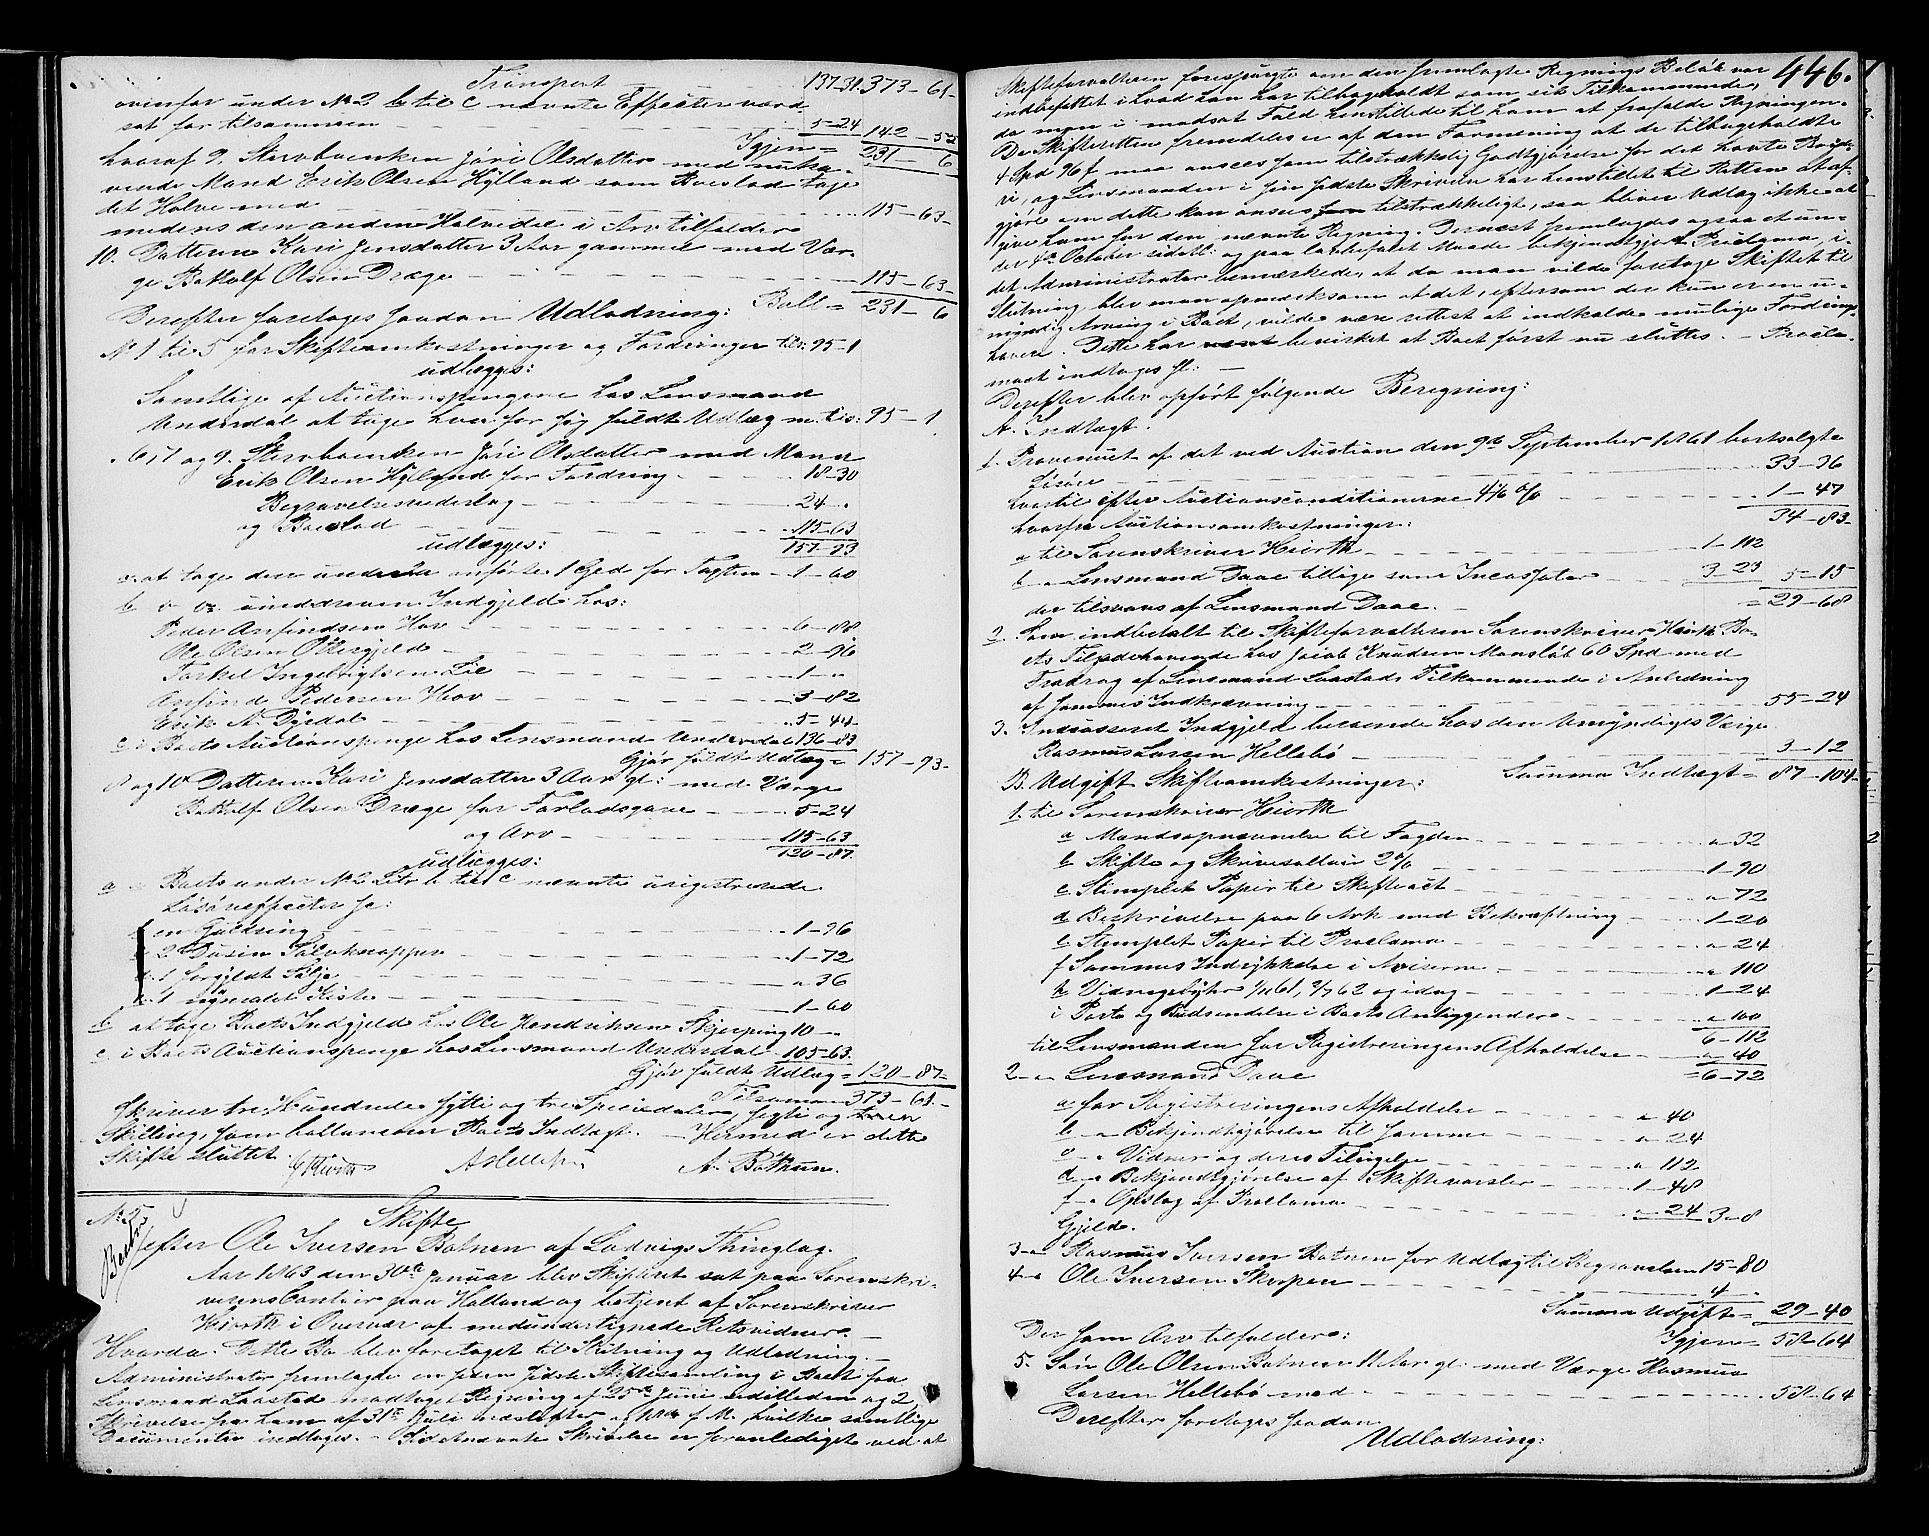 Transport 137-31. 373-61-
ovenfor under No 2 b til c nævnte Effecter værd
sat for tilsammen 5-24 142-55
Igjen = 231-6
hvoraf 9. Stervboenken Jóri Olsdatter med nuhavende
Mand Erik Olsen Hylland som Boeslod tage
det Halve med 115-63-
medens den anden Halvedel i Arv tilfalder
10. Datteren Kari Jensdatter 3 Aar gammel med Værge
Botholf Olsen Dræge 115-63-
Ball = 231-6
Derefter foretages saadan Udlodning:
No 1 til 5 for Skifteomkostninger og Fordringer tils: 95-1
udlægges:
Samtlige af Auctionspengene hos Lensmand
Underdal at tage hver for sig fuldt Udlæg m. tils: 95-1
6, 7 og 9. Stervboenken Jóri Olsdatter med Mand
Erik Olsen Hylland for Fordring 18-30
Begravelsesudlæg 24-
og Boeslod 115-63
157-93
udlægges:
a. at tage den under anførte 1 Gjed for Taxten 1-60
b uinddreven Indgjeld hos:
Peder Anfindsen Hov 6-88
Ole Olsen Ottergjeld 2-96
Torkel Ingebrigtsen Lie 1-"
Anfind Pedersen Hov 3-82
Erik A. Dyrdal 5-44
c i Boets Auctionspenge hos Lensmand Underdal 136-83
Gjør fuldt Udlæg = 157-93-
8 og 10 Datteren Kari Jensdatter 3 Aar gl: med Værge
Botholf Olsen Dræge for Forlodsgave 5-24
og Arv 115-63
120-87.
udlægges:
a Boets under No 2 Litr b til c nævnte uregistrerede
Løsøreeffecter se:
en Guldring 1-96
2 Dusin Sølvknapper 1-72
1 forgyldt Sølje " 36
1 rødmalet Kiste 1-60
b at tage Boets Indgjeld hos Ole Hendriksen Skjerping 10-"
c i Boets Auctionspenge hos Lensmand Underdal 105-63
Gjør fuldt Udlæg = 120-87-
Tilsammen 373-61-
Skriver tre Hundrede sytti og tre Speciedaler, sexti og een
Skilling, som ballancerer Boets Indtægt. Hermed er dette
Skifte sluttet.
Hiorth A. Bøthun.
No 25 Skifte
Botnen
efter Ole Iversen Botnen af Ladvigs Thinglag.
Aar 1863 den 30te Januar blev Skifteret sat paa Sorenskriverens
Contoir paa Holland og betjent af Sorenskriver
Hiorth i Overvær af medundertegnede Retsvidner.
Hvorda: Dette Bo blev foretaget til Slutning og Udlodning.
Administrator fremlagde en siden sidste Skiftesamling i Boet fra
Lensmand Laastad modtaget Regning af 25de Juni udileden og 2
Skrivelse fra ham af 31te Juli næstefter og f. M., hvilke samtlige
Documenter indtages. Sidstnævnte Skrivelse er foranlediget ved at
446.
Skifteforvalteren forespurgte om den fremlagte Regnings Beløb var
indbefattet i hvad han har tilbageholdt som sit Tilkommende,
da man i modsat Fald henstillede til ham at frafalde Regningen.
Da Skifteretten fremdeles er af den Formening at de tilbageholdte
4 Spd 96 s maa ansees som tilstrækkelig Godtgjørelse for det havte Bryderi,
og Lensmanden i sin sidste Skrivelse har henstillet til Retten at afgjøre
om dette kan ansees som tilstrækkeligt, saa bliver Udlæg ikke at
give ham for den nævnte Regning. Dernæst fremlagdes ogsaa et under
4de October sidstl: og paa lovbefalet Maade bekjendtgjort Proclama, idet
Administrator bemærkede, at da man vilde foretage Skiftet til
Slutning blev man opmærksom at det, eftersom der kun er en umyndig
Arving i Boet, vilde være rettest at indkalde mulige Fordringshavere.
Dette har bevirket at Boet først nu sluttes. Proclamaet
indtages sl:
Derefter blev opført følgende Beregning:
A. Indtægt.
1. Provenuet af det ved Auction den 9de September 1861 bortsolgte
Løsøre 33-36
hvortil efter Auctionsconditionerne 4 1/6 % 1-47
34-83-
hvorfra Auctionsomkostninger:
a til Sorenskriver Hiorth 1-112
b " Lensmand Daae tillige som Incassator 3-23 5-15
der tilsvares af Lensmand Daae. = 29-68
2. Som indbetalt til Skifteforvalteren Sorenskriver Hiorth Boets
Tilgodehavende hos Jacob Knudsen Mansløb 60 Spd med
Fradrag af Lensmand Laastads Tilkommende i Anledning
af sammes Indkrævning 55-24
3. Indcasseret Indgjeld beroende hos den Umyndiges Værge
Rasmus Larsen Hellebø 3-12
Summa Indtægt = 87-104-
B. Udgift Skifteomkostninger:
1. til Sorenskriver Hiorth
a Mandsopnævnelse til Fogden " 32
b Skifte og Skrivesallair 2 % 1-90
c Stemplet Papir til Skifteact " 72
d Beskrivelse paa 6 Ark med Bekræftning 1-20
e Stemplet Papir til Proclama " 24
f Sammes Indrykkelse i Aviserne " 110
h Vidnegebyhr 1/11 61, 2/7 62 og idag 1-24
i Porto og Budsendelse i Boets Anliggender " 100
6-112
til Lensmanden for Registreringens Afholdelse " 40
= 6-72
2 " Lensmand Daae
a for Registreringens Afholdelse " 40
b " Bekjendtgjørelse til samme " 24
c " Vidner og deres Tilsigelse " 112
d " Bekjendtgjørelse af Skiftevarsler 1-48
f " Opslag af Proclama " 24 3-8
Gjeld.
3 " Rasmus Iversen Botnen for Udlæg til Begravelsen 15-80
4 " Ole Iversen Skorpen 4 "
Summa Udgift = 29-40
Igjen = 58-64
Der som Arv tilfalder:
5. Søn Ole Olsen Botnen 11 Aar gl: med Værge Rasmus
Larsen Hellebø med 58-64
Derefter foretages saadan
Udlodning: